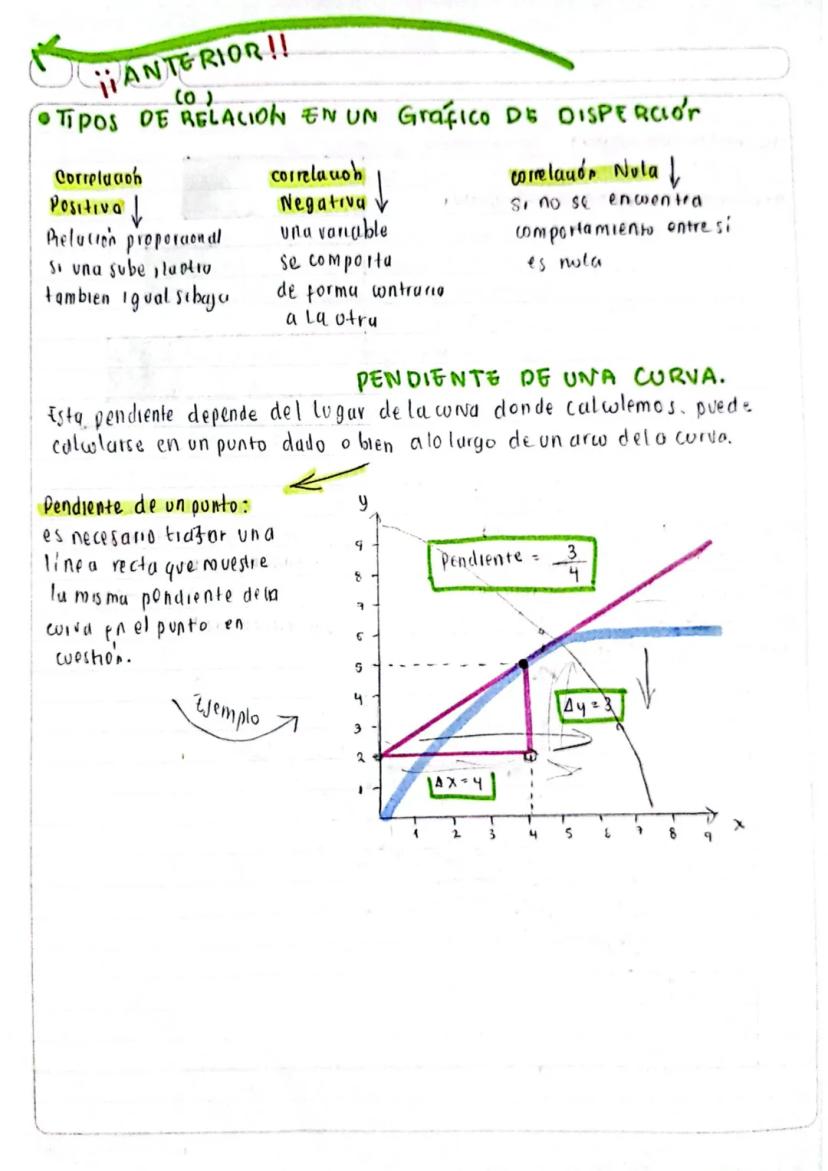 ¡¡ANTERIOR!!
(0)
• TIPOS DE RELACIÓN EN UN Gráfico DE DISPERCIÓN
Correlación
Positiva ↓
Relación proporcional
si una sube la otra
tambien igual si baja
correlación
Negativa ↓
una variable
se comporta
de forma contraria
a la otra
correlación Nula ↓
Si no se encuentra
comportamiento entre sí
es nula
PENDIENTE DE UNA CURVA.
Esta pendiente depende del lugar de la curva donde calculemos. puede
calcularse en un punto dado o bien a lo largo de un arco de la curva.
Pendiente de un punto:
es necesario trazar una
línea recta que muestre
la misma pendiente de la
curva en el punto en
cuestión.
Ejemplo
y
9
8
7
6
5
4
3
2
1
Pendiente = 3/4
Δy = 3
Δx = 4
1 2 3 4 5 6 7 8 9 x